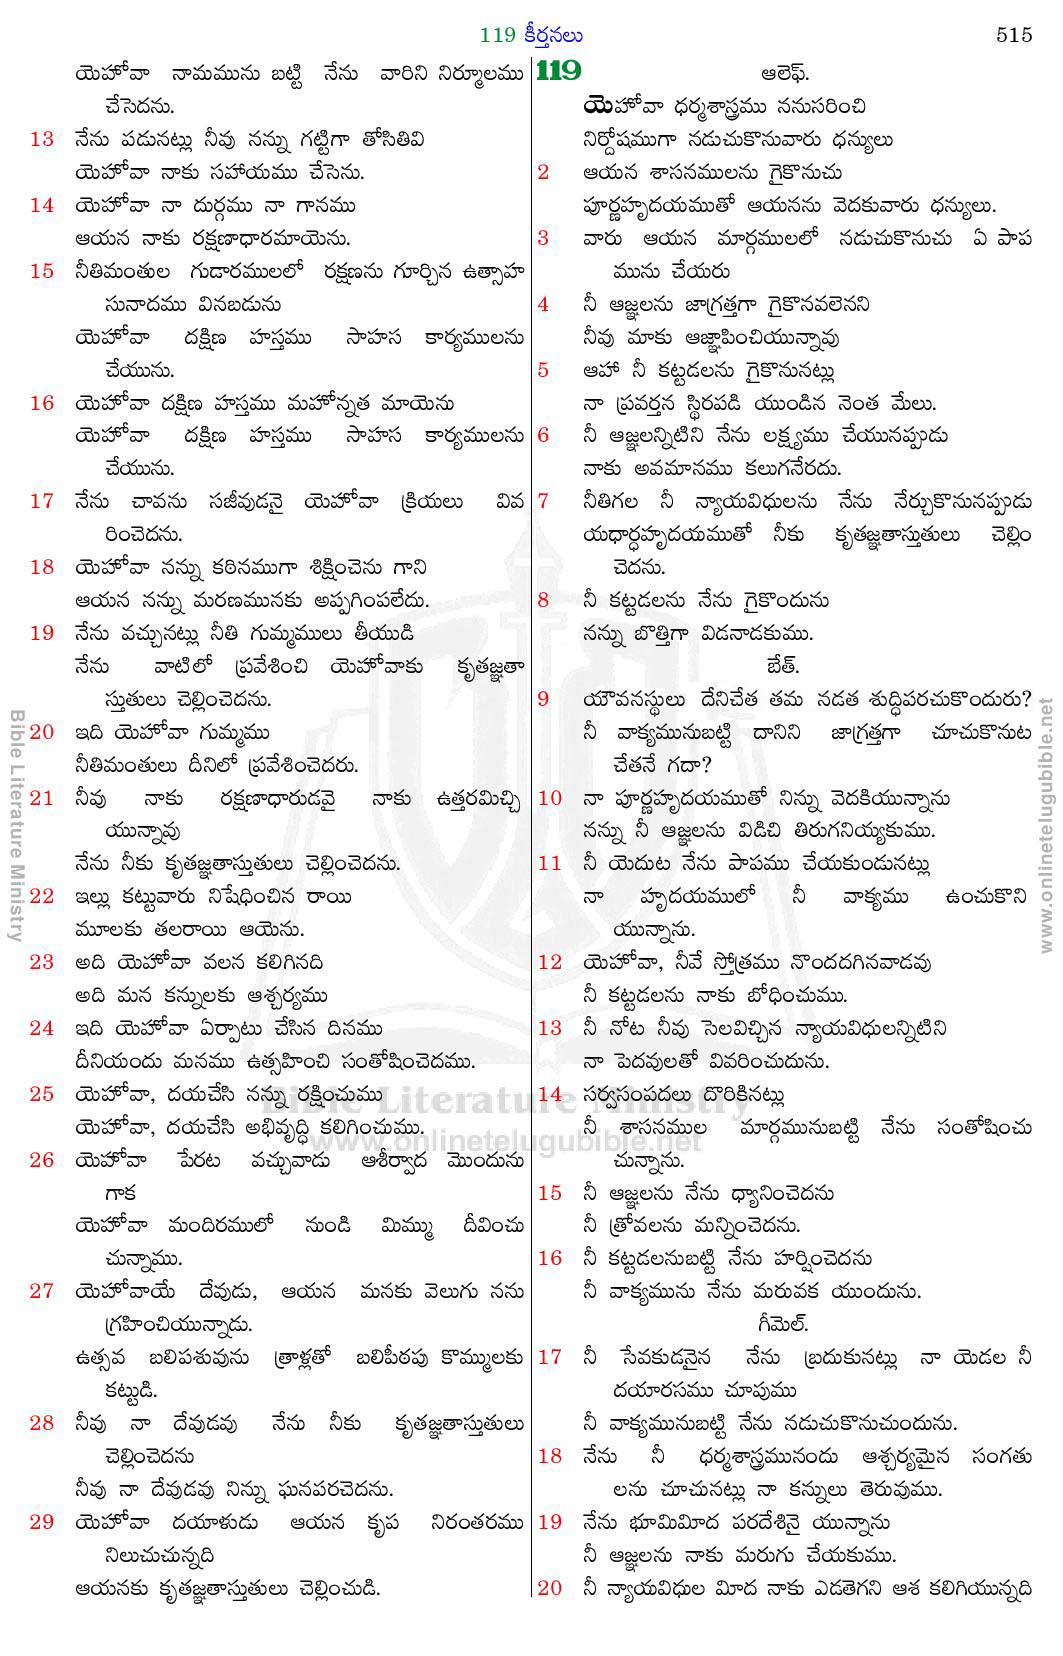 119 కీర్తనలు 515
యెహోవా నామమును బట్టి నేను వారిని నిర్మూలము
చేసెదను.
13 నేను పడునట్లు నీవు నన్ను గట్టిగా తోసితివి
యెహోవా నాకు సహాయము చేసెను.
14 యెహోవా నా దుర్గము నా గానము
ఆయన నాకు రక్షణాధారమాయెను.
15 నీతిమంతుల గుడారములలో రక్షణను గూర్చిన ఉత్సాహ
సునాదము వినబడును
యెహోవా దక్షిణ హస్తము సాహస కార్యములను
చేయును.
16 యెహోవా దక్షిణ హస్తము మహోన్నత మాయెను
యెహోవా దక్షిణ హస్తము సాహస కార్యములను
చేయును.
17 నేను చావను సజీవుడనై యెహోవా క్రియలు వివ
రించెదను.
18 యెహోవా నన్ను కఠినముగా శిక్షించెను గాని
ఆయన నన్ను మరణమునకు అప్పగింపలేదు.
19 నేను వచ్చునట్లు నీతి గుమ్మములు తీయుడి
నేను వాటిలో ప్రవేశించి యెహోవాకు కృతజ్ఞతా
స్తుతులు చెల్లించెదను.
20 ఇది యెహోవా గుమ్మము
నీతిమంతులు దీనిలో ప్రవేశించెదరు.
21 నీవు నాకు రక్షణాధారుడవై నాకు ఉత్తరమిచ్చి
యున్నావు
నేను నీకు కృతజ్ఞతాస్తుతులు చెల్లించెదను.
22 ఇల్లు కట్టువారు నిషేధించిన రాయి
మూలకు తలరాయి ఆయెను.
23 అది యెహోవా వలన కలిగినది
అది మన కన్నులకు ఆశ్చర్యము
24 ఇది యెహోవా ఏర్పాటు చేసిన దినము
దీనియందు మనము ఉత్సహించి సంతోషించెదము.
25 యెహోవా, దయచేసి నన్ను రక్షించుము
యెహోవా, దయచేసి అభివృద్ధి కలిగించుము.
26 యెహోవా పేరట వచ్చువాడు ఆశీర్వాద మొందును
గాక
యెహోవా మందిరములో నుండి మిమ్ము దీవించు
చున్నాము.
27 యెహోవాయే దేవుడు, ఆయన మనకు వెలుగు నను
గ్రహించియున్నాడు.
ఉత్సవ బలిపశువును త్రాళ్లతో బలిపీఠపు కొమ్ములకు
కట్టుడి.
28 నీవు నా దేవుడవు నేను నీకు కృతజ్ఞతాస్తుతులు
చెల్లించెదను
నీవు నా దేవుడవు నిన్ను ఘనపరచెదను.
29 యెహోవా దయాళుడు ఆయన కృప నిరంతరము
నిలుచుచున్నది
ఆయనకు కృతజ్ఞతాస్తుతులు చెల్లించుడి.
119 ఆలెఫ్.
యెహోవా ధర్మశాస్త్రము ననుసరించి
నిర్దోషముగా నడుచుకొనువారు ధన్యులు
2 ఆయన శాసనములను గైకొనుచు
పూర్ణహృదయముతో ఆయనను వెదకువారు ధన్యులు.
3 వారు ఆయన మార్గములలో నడుచుకొనుచు ఏ పాప
మును చేయరు
4 నీ ఆజ్ఞలను జాగ్రత్తగా గైకొనవలెనని
నీవు మాకు ఆజ్ఞాపించియున్నావు
5 ఆహా నీ కట్టడలను గైకొనునట్లు
నా ప్రవర్తన స్థిరపడి యుండిన నెంత మేలు.
6 నీ ఆజ్ఞలన్నిటిని నేను లక్ష్యము చేయునప్పుడు
నాకు అవమానము కలుగనేరదు.
7 నీతిగల నీ న్యాయవిధులను నేను నేర్చుకొనునప్పుడు
యథార్థహృదయముతో నీకు కృతజ్ఞతాస్తుతులు చెల్లిం
చెదను.
8 నీ కట్టడలను నేను గైకొందును
నన్ను బొత్తిగా విడనాడకుము.
బేత్.
9 యౌవనస్థులు దేనిచేత తమ నడత శుద్ధిపరచుకొందురు?
నీ వాక్యమునుబట్టి దానిని జాగ్రత్తగా చూచుకొనుట
చేతనే గదా?
10 నా పూర్ణహృదయముతో నిన్ను వెదకియున్నాను
నన్ను నీ ఆజ్ఞలను విడిచి తిరుగనియ్యకుము.
11 నీ యెదుట నేను పాపము చేయకుండునట్లు
నా హృదయములో నీ వాక్యము ఉంచుకొని
యున్నాను.
12 యెహోవా, నీవే స్తోత్రము నొందదగినవాడవు
నీ కట్టడలను నాకు బోధించుము.
13 నీ నోట నీవు సెలవిచ్చిన న్యాయవిధులన్నిటిని
నా పెదవులతో వివరించుదును.
14 సర్వసంపదలు దొరికినట్లు
నీ శాసనముల మార్గమునుబట్టి నేను సంతోషించు
చున్నాను.
15 నీ ఆజ్ఞలను నేను ధ్యానించెదను
నీ త్రోవలను మన్నించెదను.
16 నీ కట్టడలనుబట్టి నేను హర్షించెదను
నీ వాక్యమును నేను మరువక యుందును.
గీమెల్.
17 నీ సేవకుడనైన నేను బ్రదుకునట్లు నా యెడల నీ
దయారసము చూపుము
నీ వాక్యమునుబట్టి నేను నడుచుకొనుచుందును.
18 నేను నీ ధర్మశాస్త్రమునందు ఆశ్చర్యమైన సంగతు
లను చూచునట్లు నా కన్నులు తెరువుము.
19 నేను భూమిమీద పరదేశినై యున్నాను
నీ ఆజ్ఞలను నాకు మరుగు చేయకుము.
20 నీ న్యాయవిధుల మీద నాకు ఎడతెగని ఆశ కలిగియున్నది
Bible Literature Ministry
www.onlinetelugubible.net
Bible Literature Ministry
www.onlinetelugubible.net